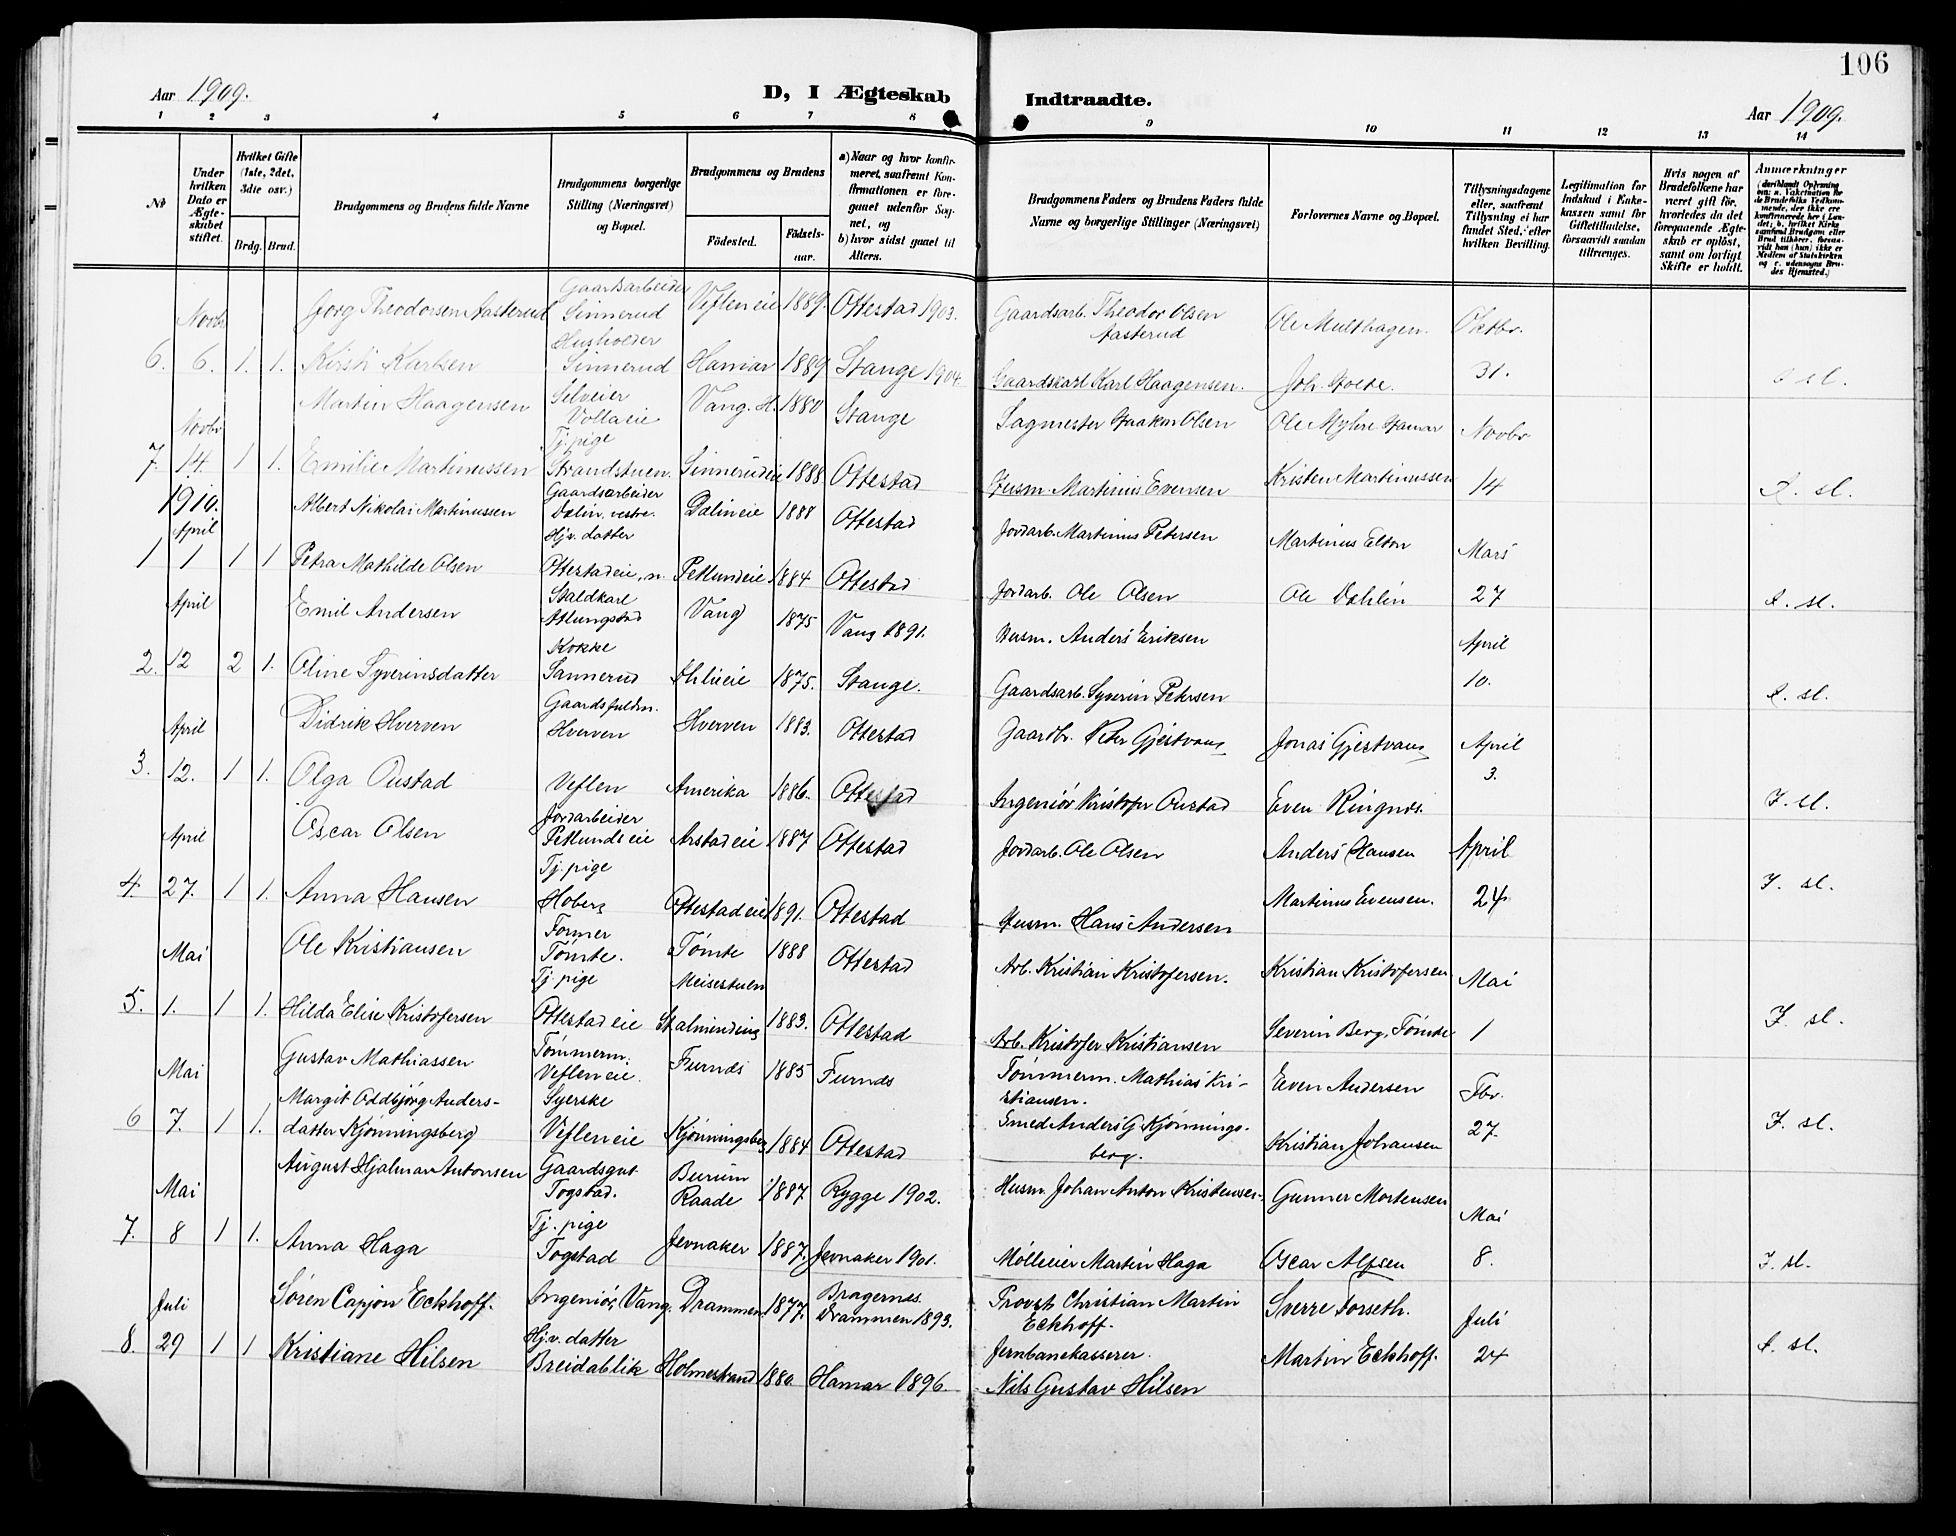 106
Aar 1909.
D, I Ægteskab Indtraadte.
Aar 1909.
1 2 3 4 5 6 7 8 9 10 11 12 13 14
No
Under hvilken Dato er Ægteskabet stiftet.
Hvilket Gifte (1ste, 2det, 3die osv.)
Brdg. Brud.
Brudgommens og Brudens fulde Navne
Brudgommens borgerlige Stilling (Næringsvei) og Bopæl.
Brudgommens og Brudens
Fødested.
Fødselsaar.
a) Naar og hvor konfirmeret, saafremt Konfirmationen er foregaaet udenfor Sognet, og
b) hvor sidst gaaet til Alters.
Brudgommens Faders og Brudens Faders fulde Navne og borgerlige Stillinger (Næringsvei)
Forlovernes Navne og Bopæl.
Tillysningsdagene eller, saafremt Tillysning ei har fundet Sted, efter hvilken Bevilling.
Legitimation for Indskud i Enkekassen samt for Giftetilladelse, forsaavidt saadan tiltrænges.
Hvis nogen af Brudefolkene har været gift før, hvorledes da det foregaaende Ægteskab er opløst, samt om lovligt Skifte er holdt.
Anmærkninger
Novbr Georg Theodorsen Aasterud Gaardsarbeider Sinnerud Vefleneie 1889. Ottestad 1903. Gaardsarb. Theodor Olsen Aasterud Ole Multhagen. Oktbr.
6. 6. 1. 1. Kirsti Karlsen Husholder Sinnerud Hamar 1889 Stange 1904 Gaardskarl Karl Haagensen. Joh. 31. sl.
Novbr Martin Haagensen Selveier Vollaeie Vang. H. 1880 Stange Sagmester Haakon Olsen Ole Myhre Hamar Novbr
7. 14. 1 1. Emilie Martinussen Tj. pige Strandstuen. Sinnerudeie 1888 Ottestad Husm. Martinus Evensen Kristen Martinussen 14 I. sl.
1910.
April Albert Nikolai Martinussen Gaardsarbeider Dælin, vestre. Dælineie 1888 Ottestad Jordarb. Martinus Petersen Martinus Elton Mars
1 1 1 1 Petra Mathilde Olsen Hj.v. datter Ottestadeie, n. Petlundeie 1884 Ottestad Jordarb. Ole Olsen Ole Dahlin 27 I. sl.
April Emil Andersen Staldkarl Atlungstad Vang 1875 Vang 1891. Husm. Anders Eriksen April
2. 12 2 1. Oline Syverinsdatter Kokke Sannerud 1875. Stange. Gaardsarb. Syverin Petersen 10. I. sl.
April Didrik Hverven Gaardsfuldm. Hverven Hverven 1883. Ottestad Gaardbr. Peter Gjestvang Jonas Gjestvang April
3. 12. 1 1. Olga Oustad Veflen Amerika 1886. Ottestad Ingeniör Kristofer Oustad Even Ringnes. 3. I. sl.
April Oscar Olsen Jordarbeider Petlundseie Arstadeie 1887 Ottestad Jordarb. Ole Olsen Anders Hansen April
4. 27. 1 1. Anna Hansen Tj. pige Hoberg Ottestadeie 1891. Ottestad Husm. Hans Andersen Martinus Evensen. 24 I. sl.
Mai Ole Kristiansen Former Tømte. Tømte 1888 Ottestad Arb. Kristian Kristofersen. Kristian Kristofersen Mai
5. 1. 1 1. Hilda Elise Kristofersen Tj. pige Ottestadeie Meisestuen 1883. Ottestad Arb. Kristofer Kristiansen Severin Berg, Tömte 1 I. sl.
Mai Gustav Mathiassen Tømmerm. Vefleneie. Furnes 1885 Furnes Tømmerm. Mathias Kristiansen. Even Andersen Fbr.
6 7. 1 1. Margit Oddbjörg Andersdatter Kjönningsberg Syerske Vefleneie Kjönningsberg 1884 Ottestad Smed Anders G. Kjønningsberg. Kristian Johansen 27. I. sl.
Mai August Hjalmar Antonsen Gaardsgut Togstad. Burum Raade 1887 Rygge 1902. Husm. Johan Anton Kristensen. Gunner Mortensen Mai
7. 8 1 1. Anna Haga Tj. pige Togstad Jevnaker 1887. Jevnaker 1901. Mølleeier Martin Haga Oscar Alfsen 8. I. sl.
Juli Søren Capjon Eckhoff. Ingeniör, Vang. Drammen 1877. Bragernes. Drammen 1893. Provst Christian Martin Eckhoff. Sverre Forseth. Juli
8. 29 1 1 Kristiane Hilsen Hj.v. datter Breidablik Holmestrand 1880. Hamar 1896. Jernbanekasserer. Nils Gustav Hilsen Martin Eckhoff. 24 I. sl.